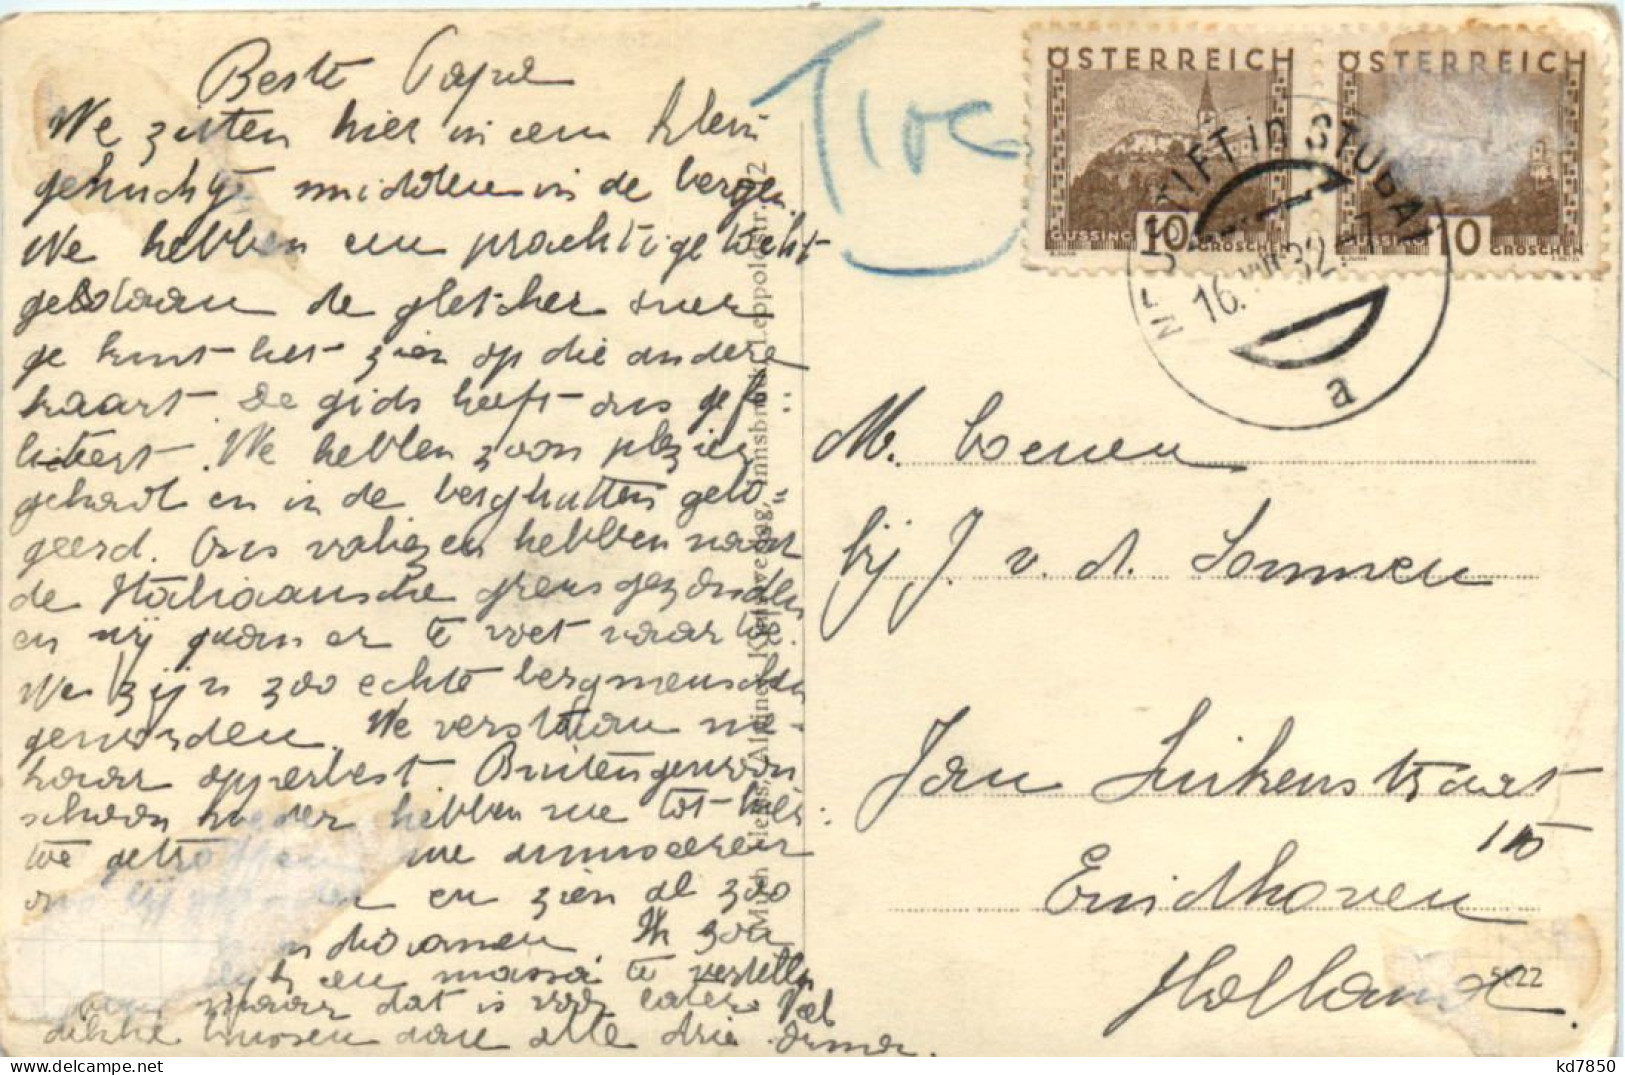 Beste Papa
We zitten hier in een klein
gehuchtje midden in de bergen.
We hebben een prachtige tocht
gedaan de gletscher over
je kunt het zien op die andere
kaart. De gids heeft ons gefe-
liciteert. We hebben zoon plezier
gehad en in de berghutten gelo=
geerd. Ons valiezen hebben naar
de Italiaansche grens gezonden
en wij gaan er te voet naar toe.
We zijn zoo echte bergmenschen
geworden. We verstaan me-
kaar opperbest. Buitengewoon
schoon weder hebben we tot hier
toe getroffen we amuseeren
ons en zien de zoo
Ik zou
en massa te vertellen
maar dat is voor later. Veel
dikke kussen van alle drie
ÖSTERREICH ÖSTERREICH
10 10
GÜSSING GROSCHEN GROSCHEN
NEUSTIFT in STUBAI
16. VIII 32 - 7
a
M. Coenen
bij J. v. d. Sommen
Jan Luikenstraat
110
Eindhoven
Holland.
5622
kd7850